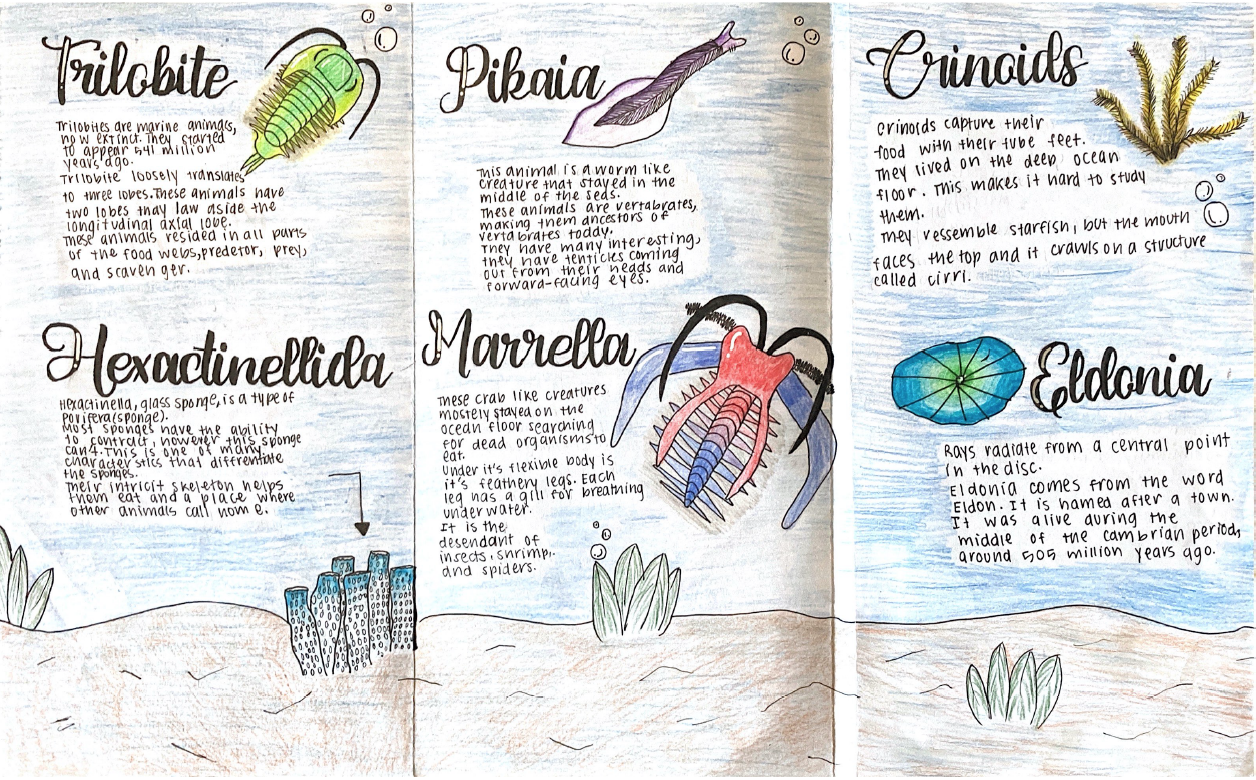 Trilobite
Trilobites are marine animals,
now extinct. They started
to appear 541 million
years ago.
Trilobite loosely translates
to three lobes. These animals have
two lobes thay law aside the
longitudinal axial lobe.
These animals resided in all parts
of the food webs, predetor, prey,
and scaven ger.
Hexactinellida
Hexactinella, glass sponge, is a type of
Porifera(sponge).
Most sponges have the ability
to contract, however this sponge
can4. This is one of many
character stics that differentate
the sponges.
Their intrict skeleton helps
them eat and a place where
other animals call hom e.
Pikaia
This animal is a worm like
creature that stayed in the
middle of the seas.
These animals are vertabrates,
making them ancestors of
vertabrates today.
They have many interesting,
they have tenticles coming
out from their heads and
forward-facing eyes.
Marrella
These crab like creatures
mostely stayed on the
ocean floor searching
for dead organisms to
eat.
Under it's flexible body is
it's feathery legs. Each
leg has a gill for breathing
underwater.
It is the
desendant of
insects, shrimp,
and spiders.
Crinoids
Crinoids capture their
food with their tube feet.
They lived on the deep ocean
floor. This makes it hard to study
them.
They ressemble starfish, but the mouth
faces the top and it crawls on a structure
called cirri.
Eldonia
Rays radiate from a central point
in the disc.
Eldonia comes from the word
Eldon. It is named after a town.
It was alive during the
middle of the cambrian period,
around 505 million years ago.